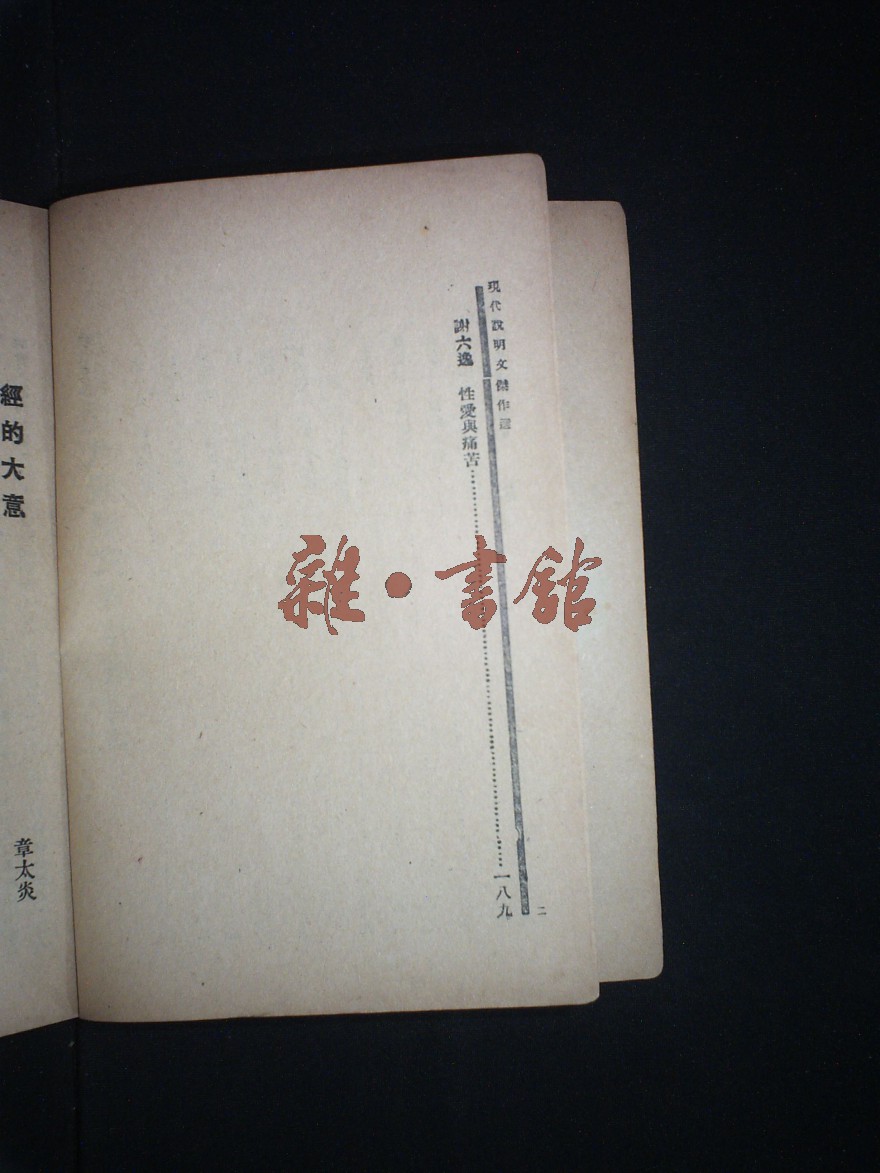 現代說明文傑作選
謝六逸　性愛與痛苦……一八九
二
經的大意
章太炎
雜・書館